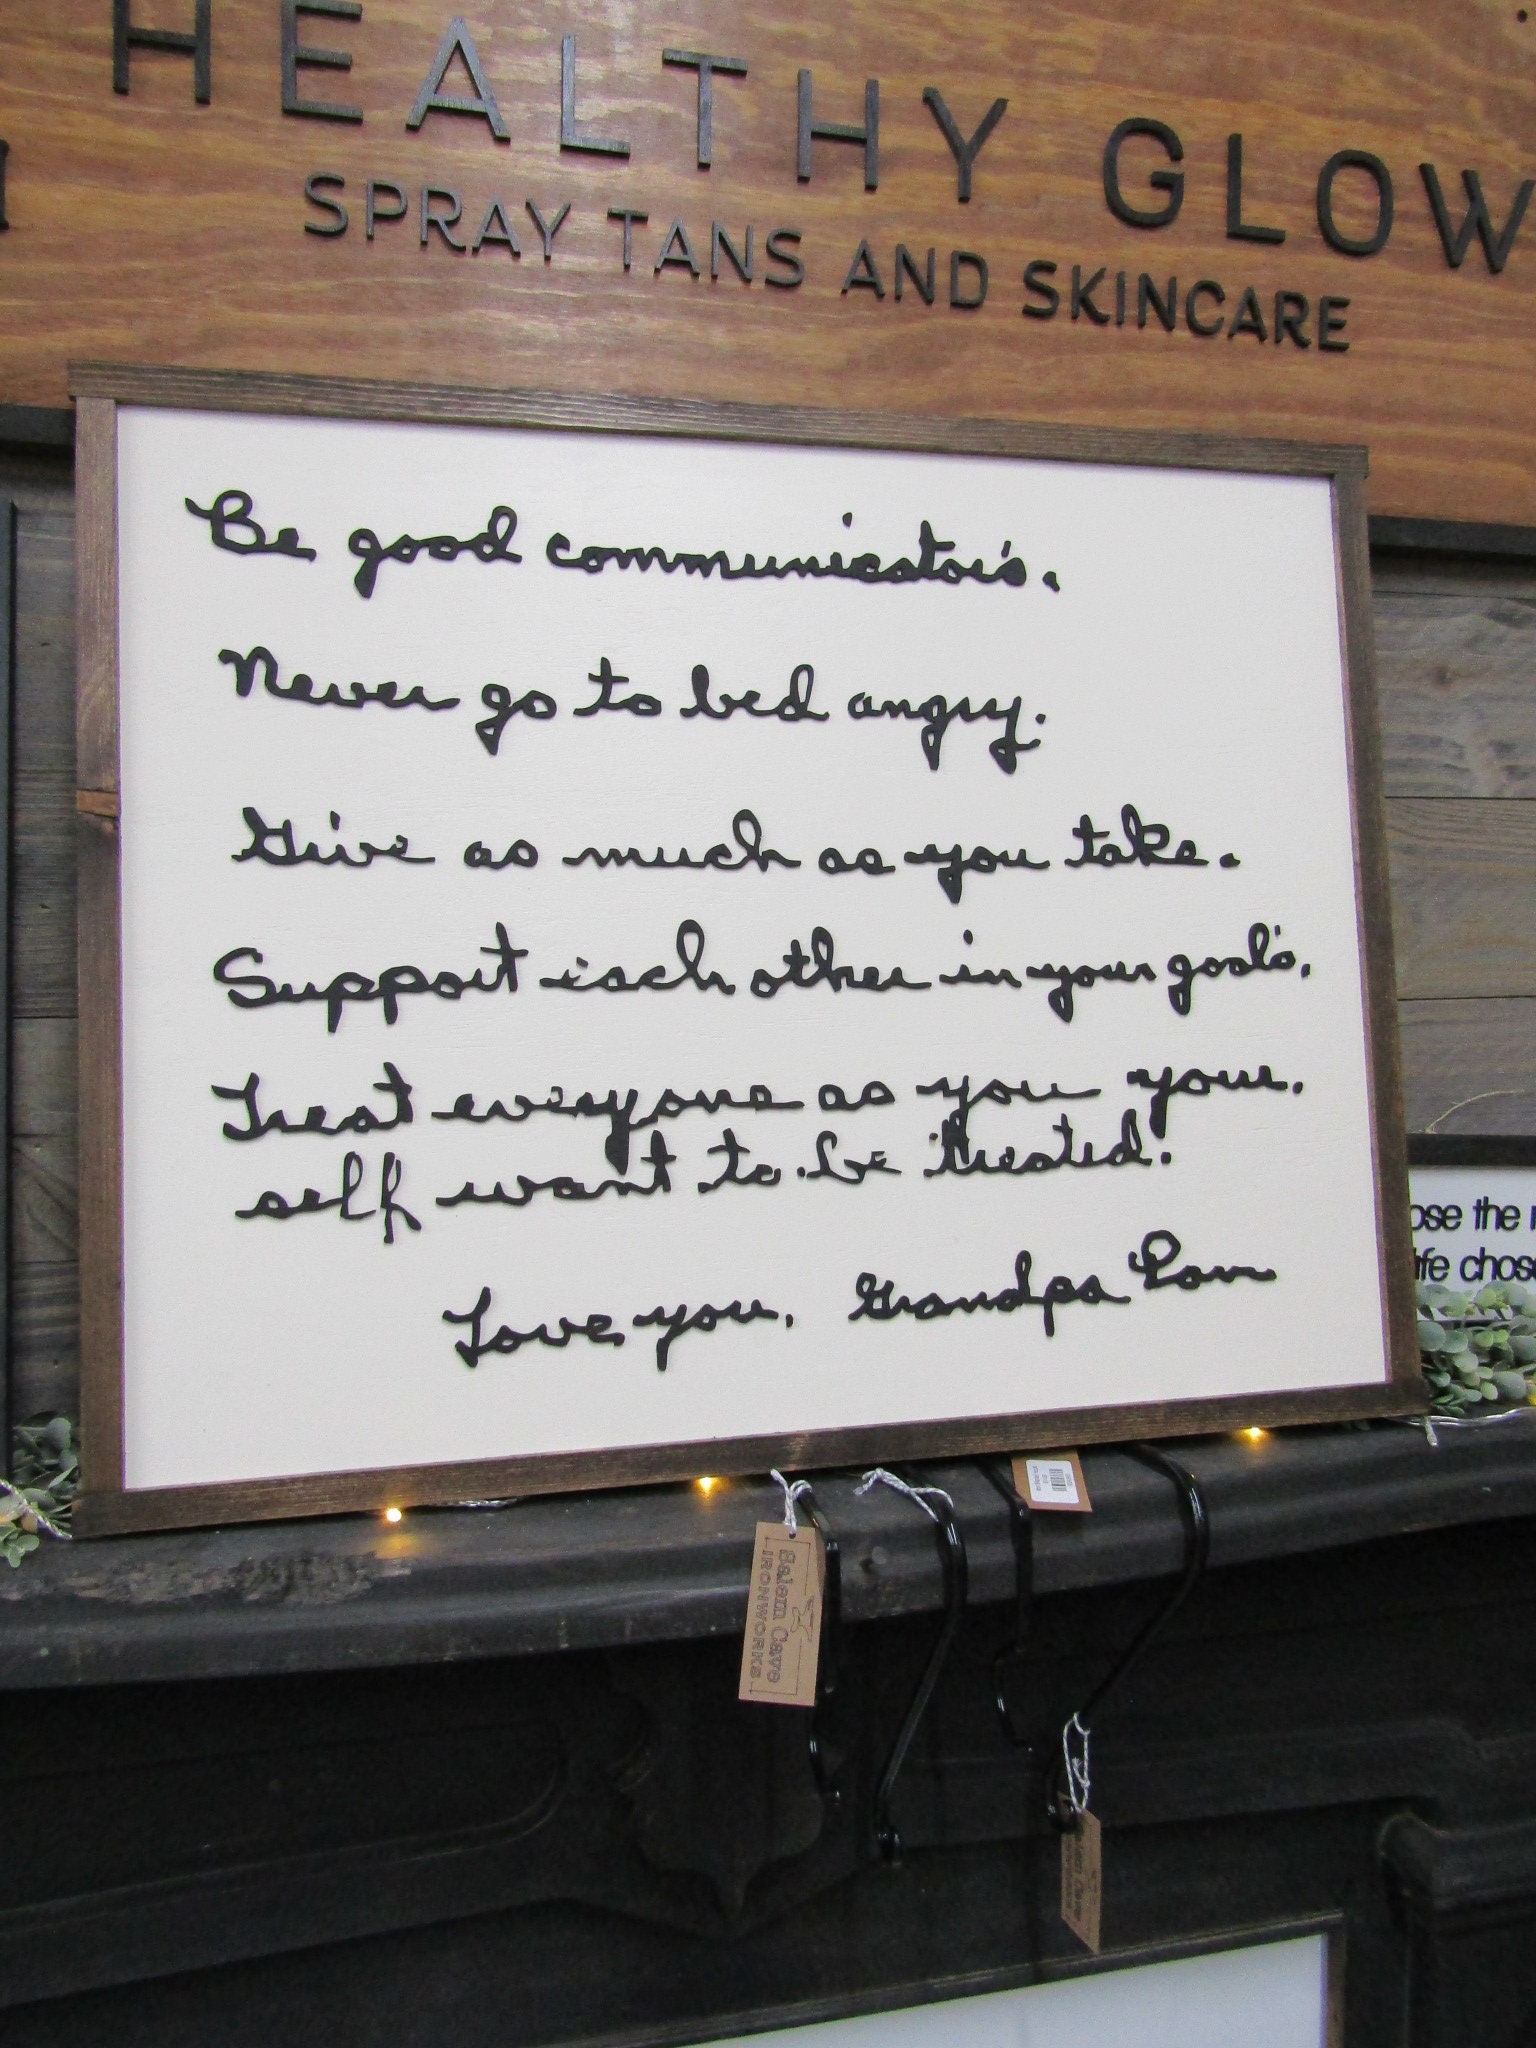 HEALTHY GLOW
SPRAY TANS AND SKINCARE
Be good communicator's.
Never go to bed angry.
Give as much as you take.
Support each other in your goal's.
Treat everyone as you your.
self want to be treated.
Love you. Grandpa
ose the
life chose
Salem Cave
IRONWORKS